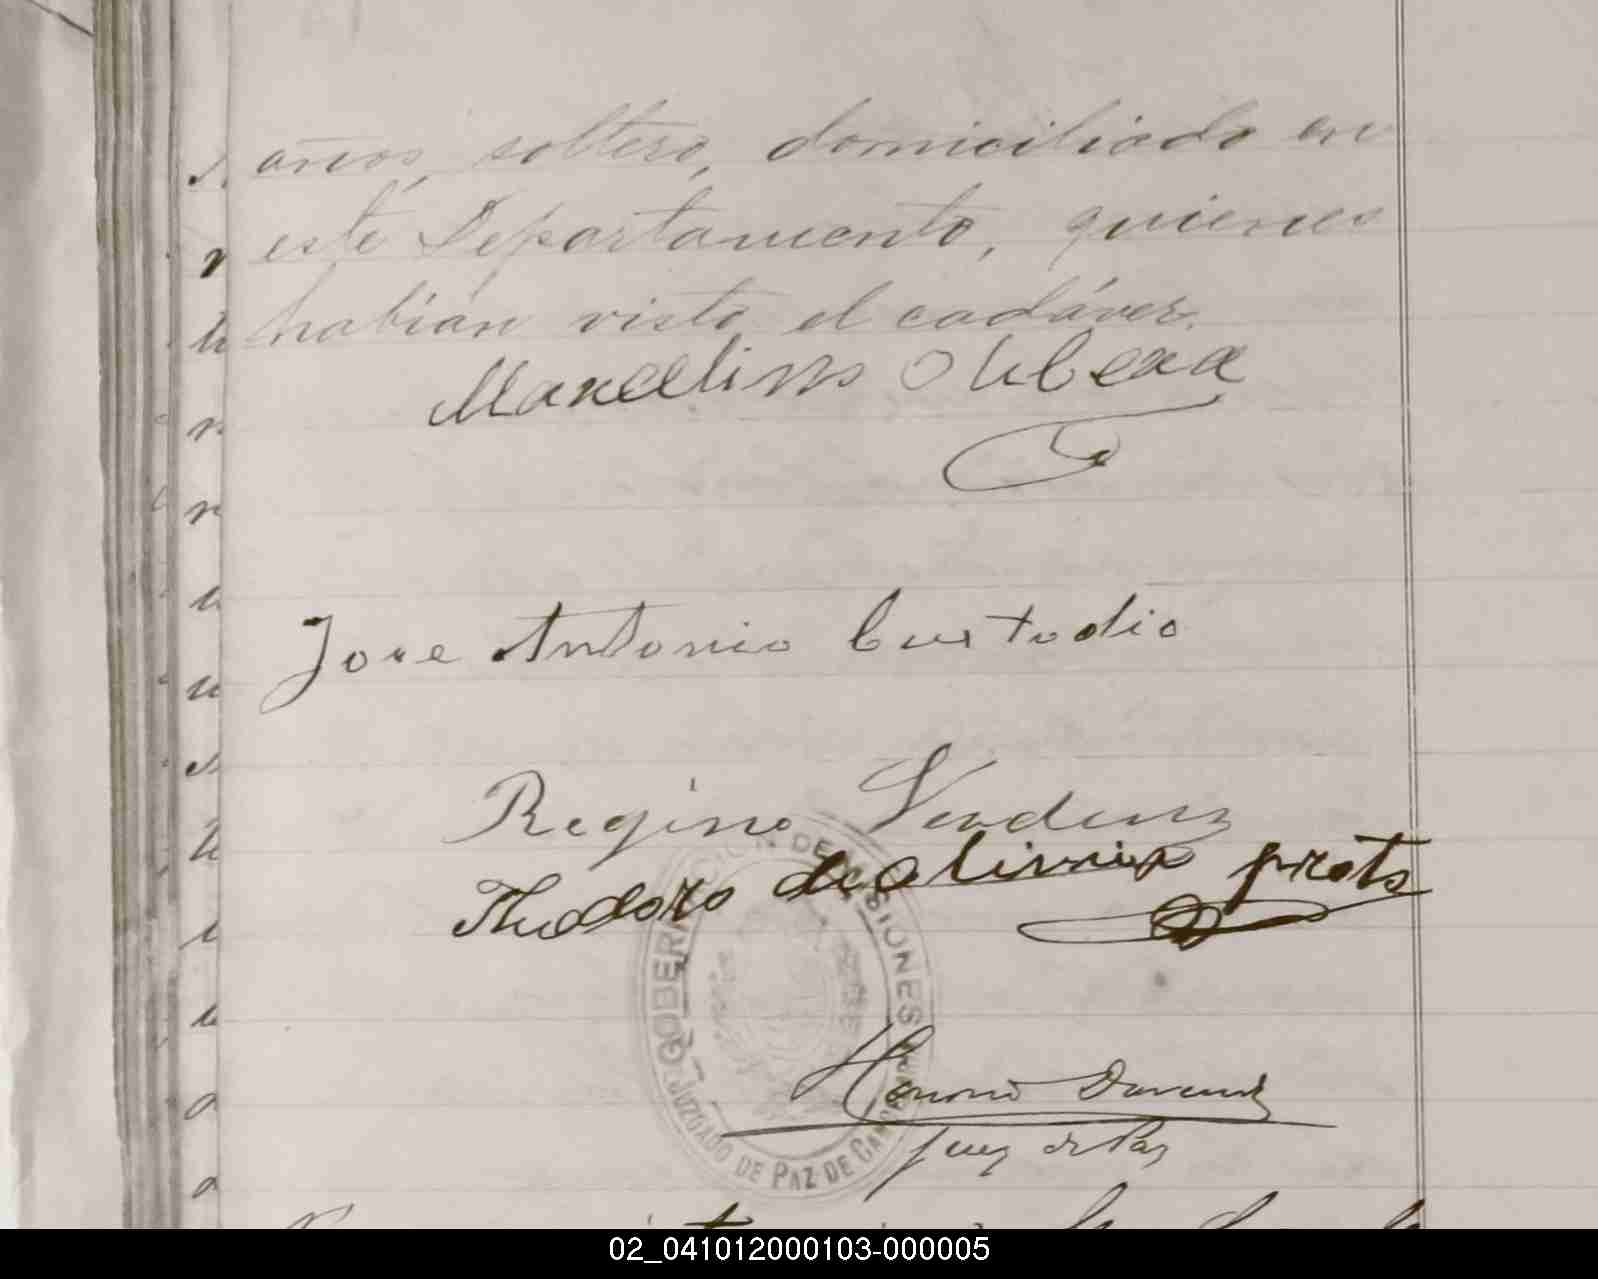 años, soltero, domiciliado en
este Departamento, quienes
habian visto el cadáver.
Marcelino
Jose Antonio Custodio
Regino
Theodoro de oliveira prots
GOBERNACION DE MISIONES
JUZGADO DE PAZ DE
Honorio
Juez de Paz
02_041012000103-000005